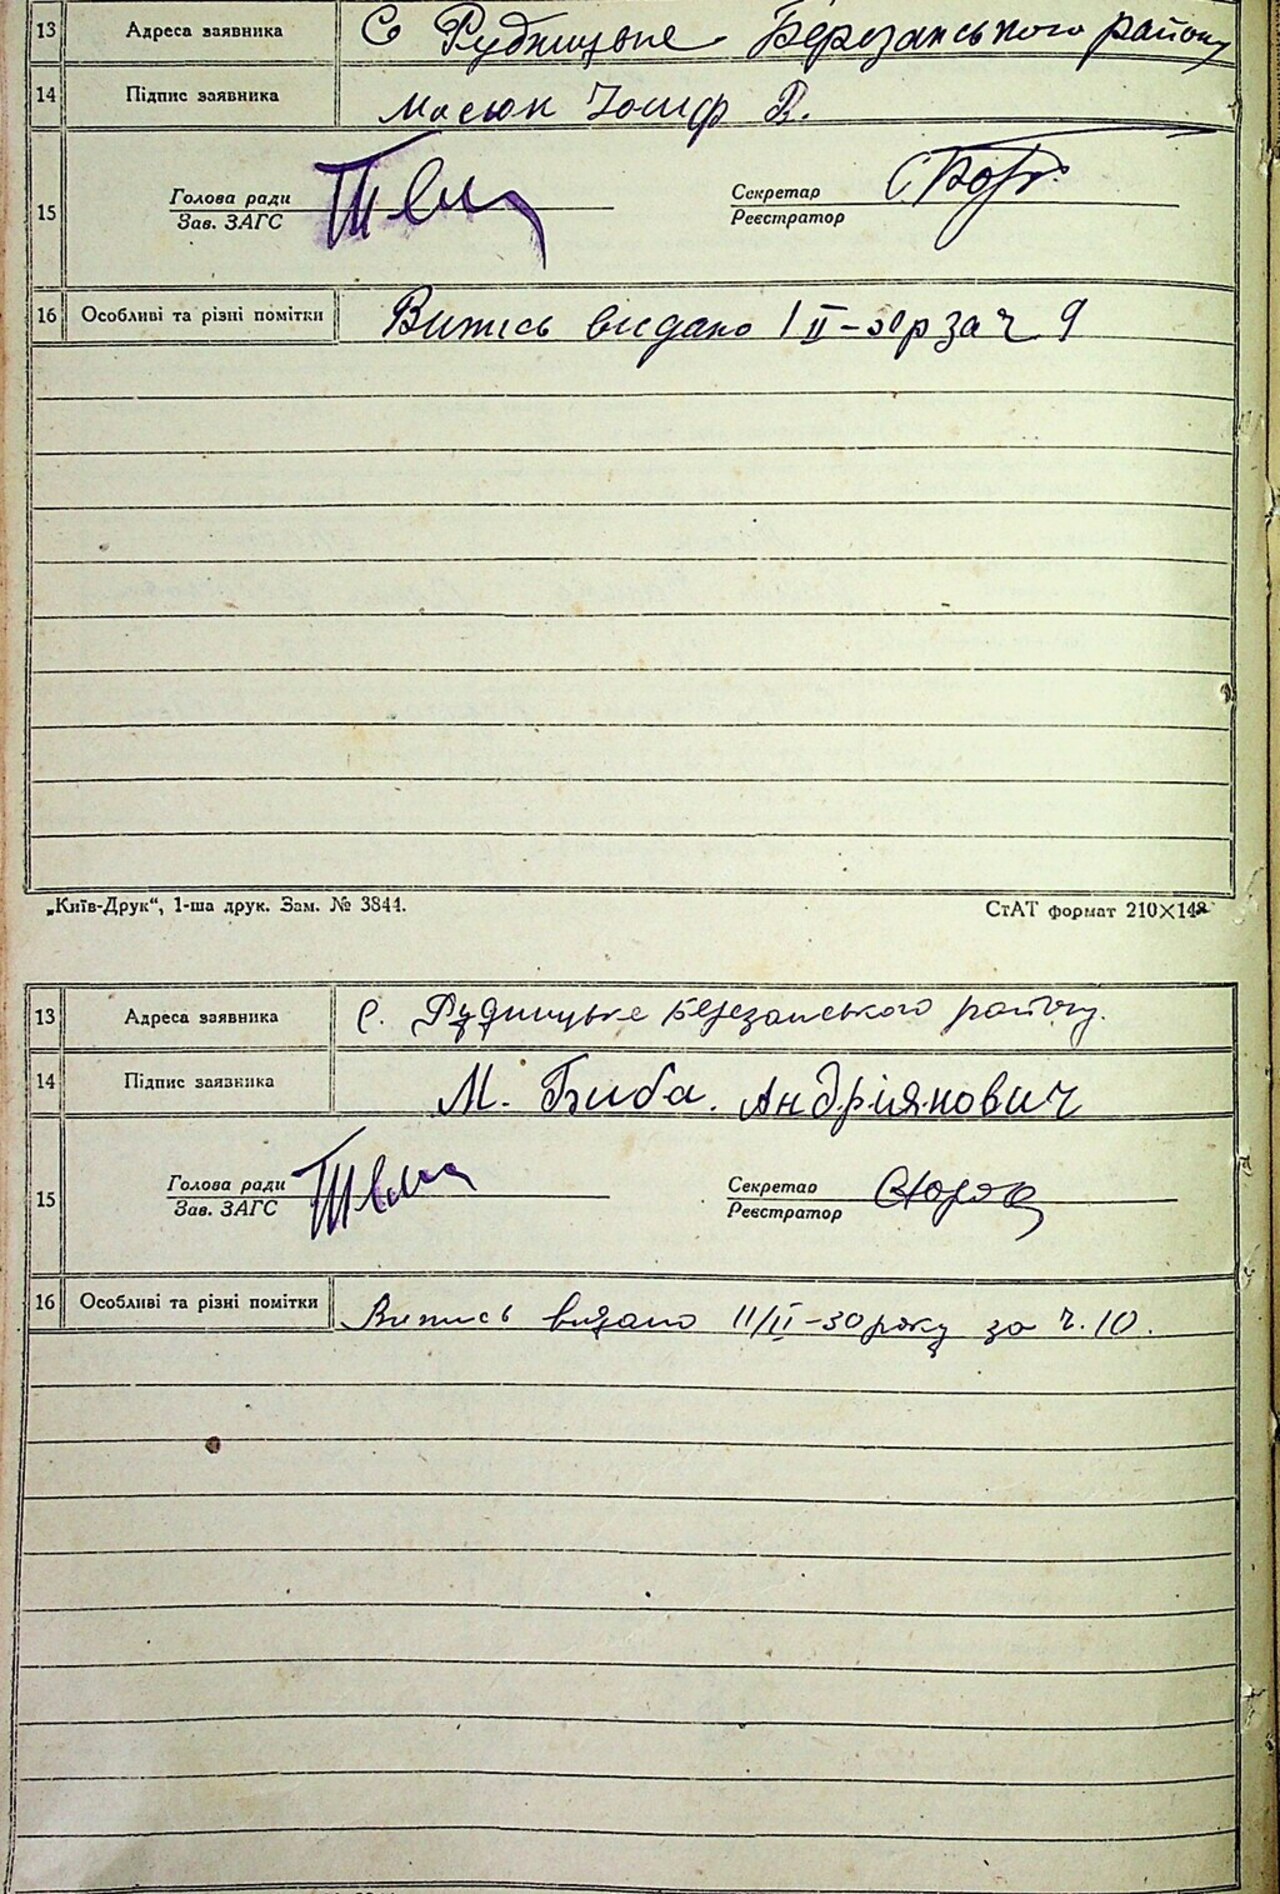 13 Адреса заявника С Рудницьке Березанського району
14 Підпис заявника Масюк Йосиф В.
15 Голова ради Секретар
Зав. ЗАГС Реєстратор
16 Особливі та різні помітки Витись видано 1 II-30р за ч 9
„Київ-Друк“, 1-ша друк. Зам. № 3844. СтАТ формат 210×148
13 Адреса заявника с. Рудницьке Березанського району.
14 Підпис заявника М. Биба. Андріянович
15 Голова ради Секретар
Зав. ЗАГС Реєстратор
16 Особливі та різні помітки Випись видано 11/II-30 року за ч. 10.